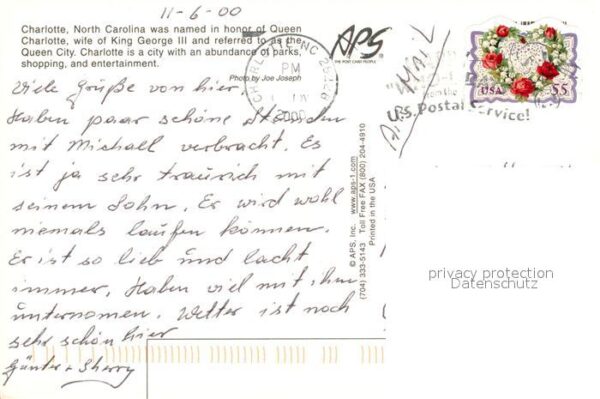 11-6-00
Charlotte, North Carolina was named in honor of Queen
Charlotte, wife of King George III and referred to as the
Queen City. Charlotte is a city with an abundance of parks,
shopping, and entertainment.
Photo by Joe Joseph
APS
THE POST CARD PEOPLE
CHARLOTTE NC
PM
2000
Air MAIL
U.S. Postal Service!
USA
55
Viele Grüße von hier.
Haben paar schöne Stunden
mit Michael verbracht. Es
ist ja sehr traurich mit
seinem Sohn. Er wird wohl
niemals laufen können.
Er ist so lieb und lacht
immer. Haben viel mit ihm
unternomen. Wetter ist noch
sehr schön hier
Günter + Sherry
© APS, Inc. www.aps-1.com
(704) 333-5143 Toll Free FAX (800) 204-4910
Printed in the USA
privacy protection
Datenschutz